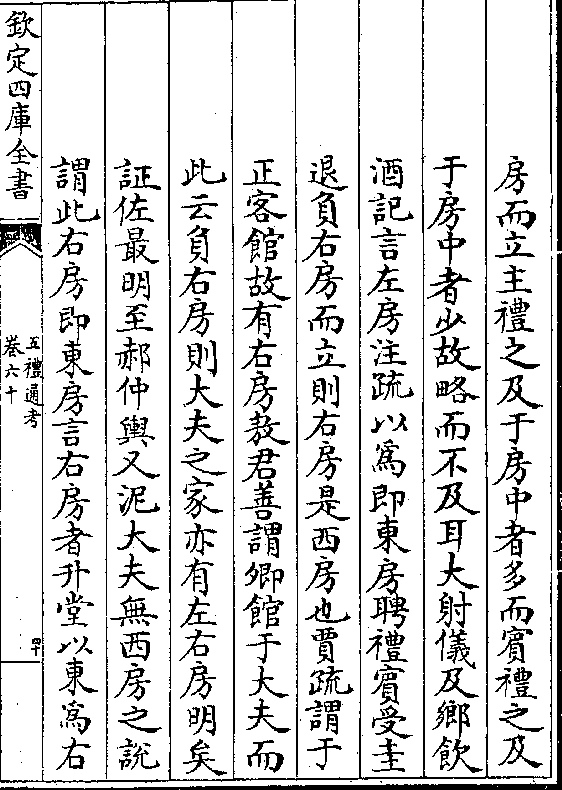 房而立主禮之及于房中者多而賓禮之及
于房中者少故略而不及耳大射儀及鄉飲
酒記言左房注疏以爲即東房聘禮賓受圭
退負右房而立則右房是西房也賈疏謂于
正客館故有右房敖君善謂卿館于大夫而
此云負右房則大夫之家亦有左右房明矣
証佐最明至郝仲輿又泥大夫無西房之說
謂此右房即東房言右房者升堂以東爲右
欽定四庫全書
五禮通考
卷六十
四十